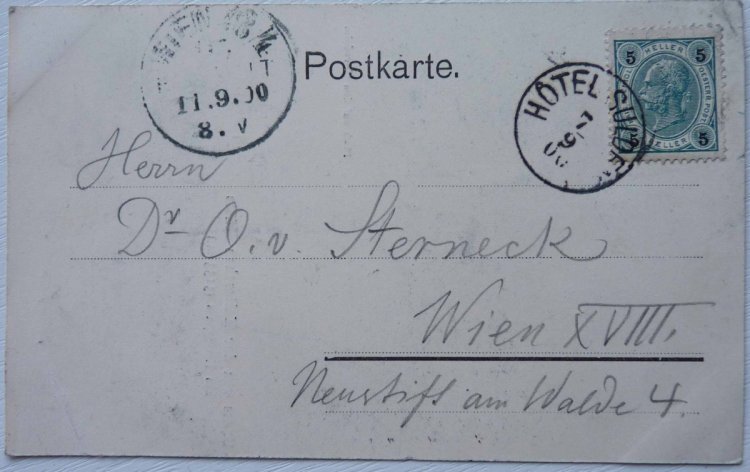 WIEN 18/1
11.9.00
8.V
Postkarte.
HÔTEL SULDEN
7
9
00
5 HELLER 5
OESTERR. POST
5 HELLER 5
Herrn
Dr. O. v. Sterneck
Wien XVIII.
Neustift am Walde 4.